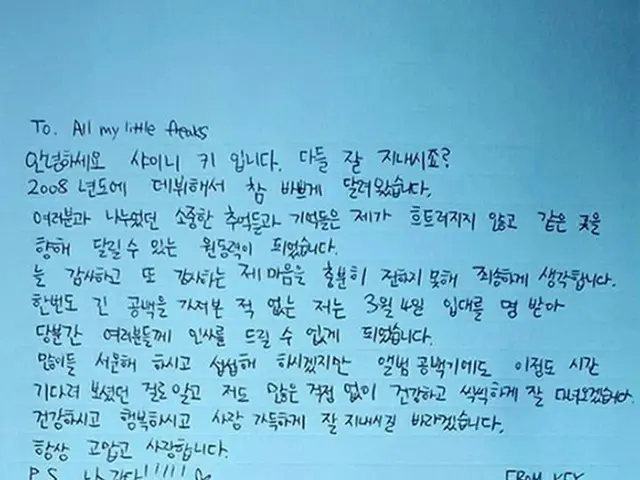 To. All my little freaks
안녕하세요 샤이니 키 입니다. 다들 잘 지내시죠?
2008년도에 데뷔해서 참 바쁘게 달려왔습니다.
여러분과 나누었던 소중한 추억들과 기억들은 제가 흐트러지지 않고 같은 곳을
향해 달릴 수 있는 원동력이 되었습니다.
늘 감사하고 또 감사하는 제 마음을 충분히 전하지 못해 죄송하게 생각합니다.
한번도 긴 공백을 가져본 적 없는 저는 3월 4일 입대를 명 받아
당분간 여러분들께 인사를 드릴 수 없게 되었습니다.
많이들 서운해 하시고 섭섭해 하시겠지만 앨범 공백기에도 이정도 시간
기다려 보셨던 걸로 알고 저도 많은 걱정 없이 건강하고 씩씩하게 잘 다녀오겠습니다.
건강하시고 행복하시고 사랑 가득하게 잘 지내시길 바라겠습니다.
항상 고맙고 사랑합니다.
P.S 나 간다!!!!!
FROM KEY